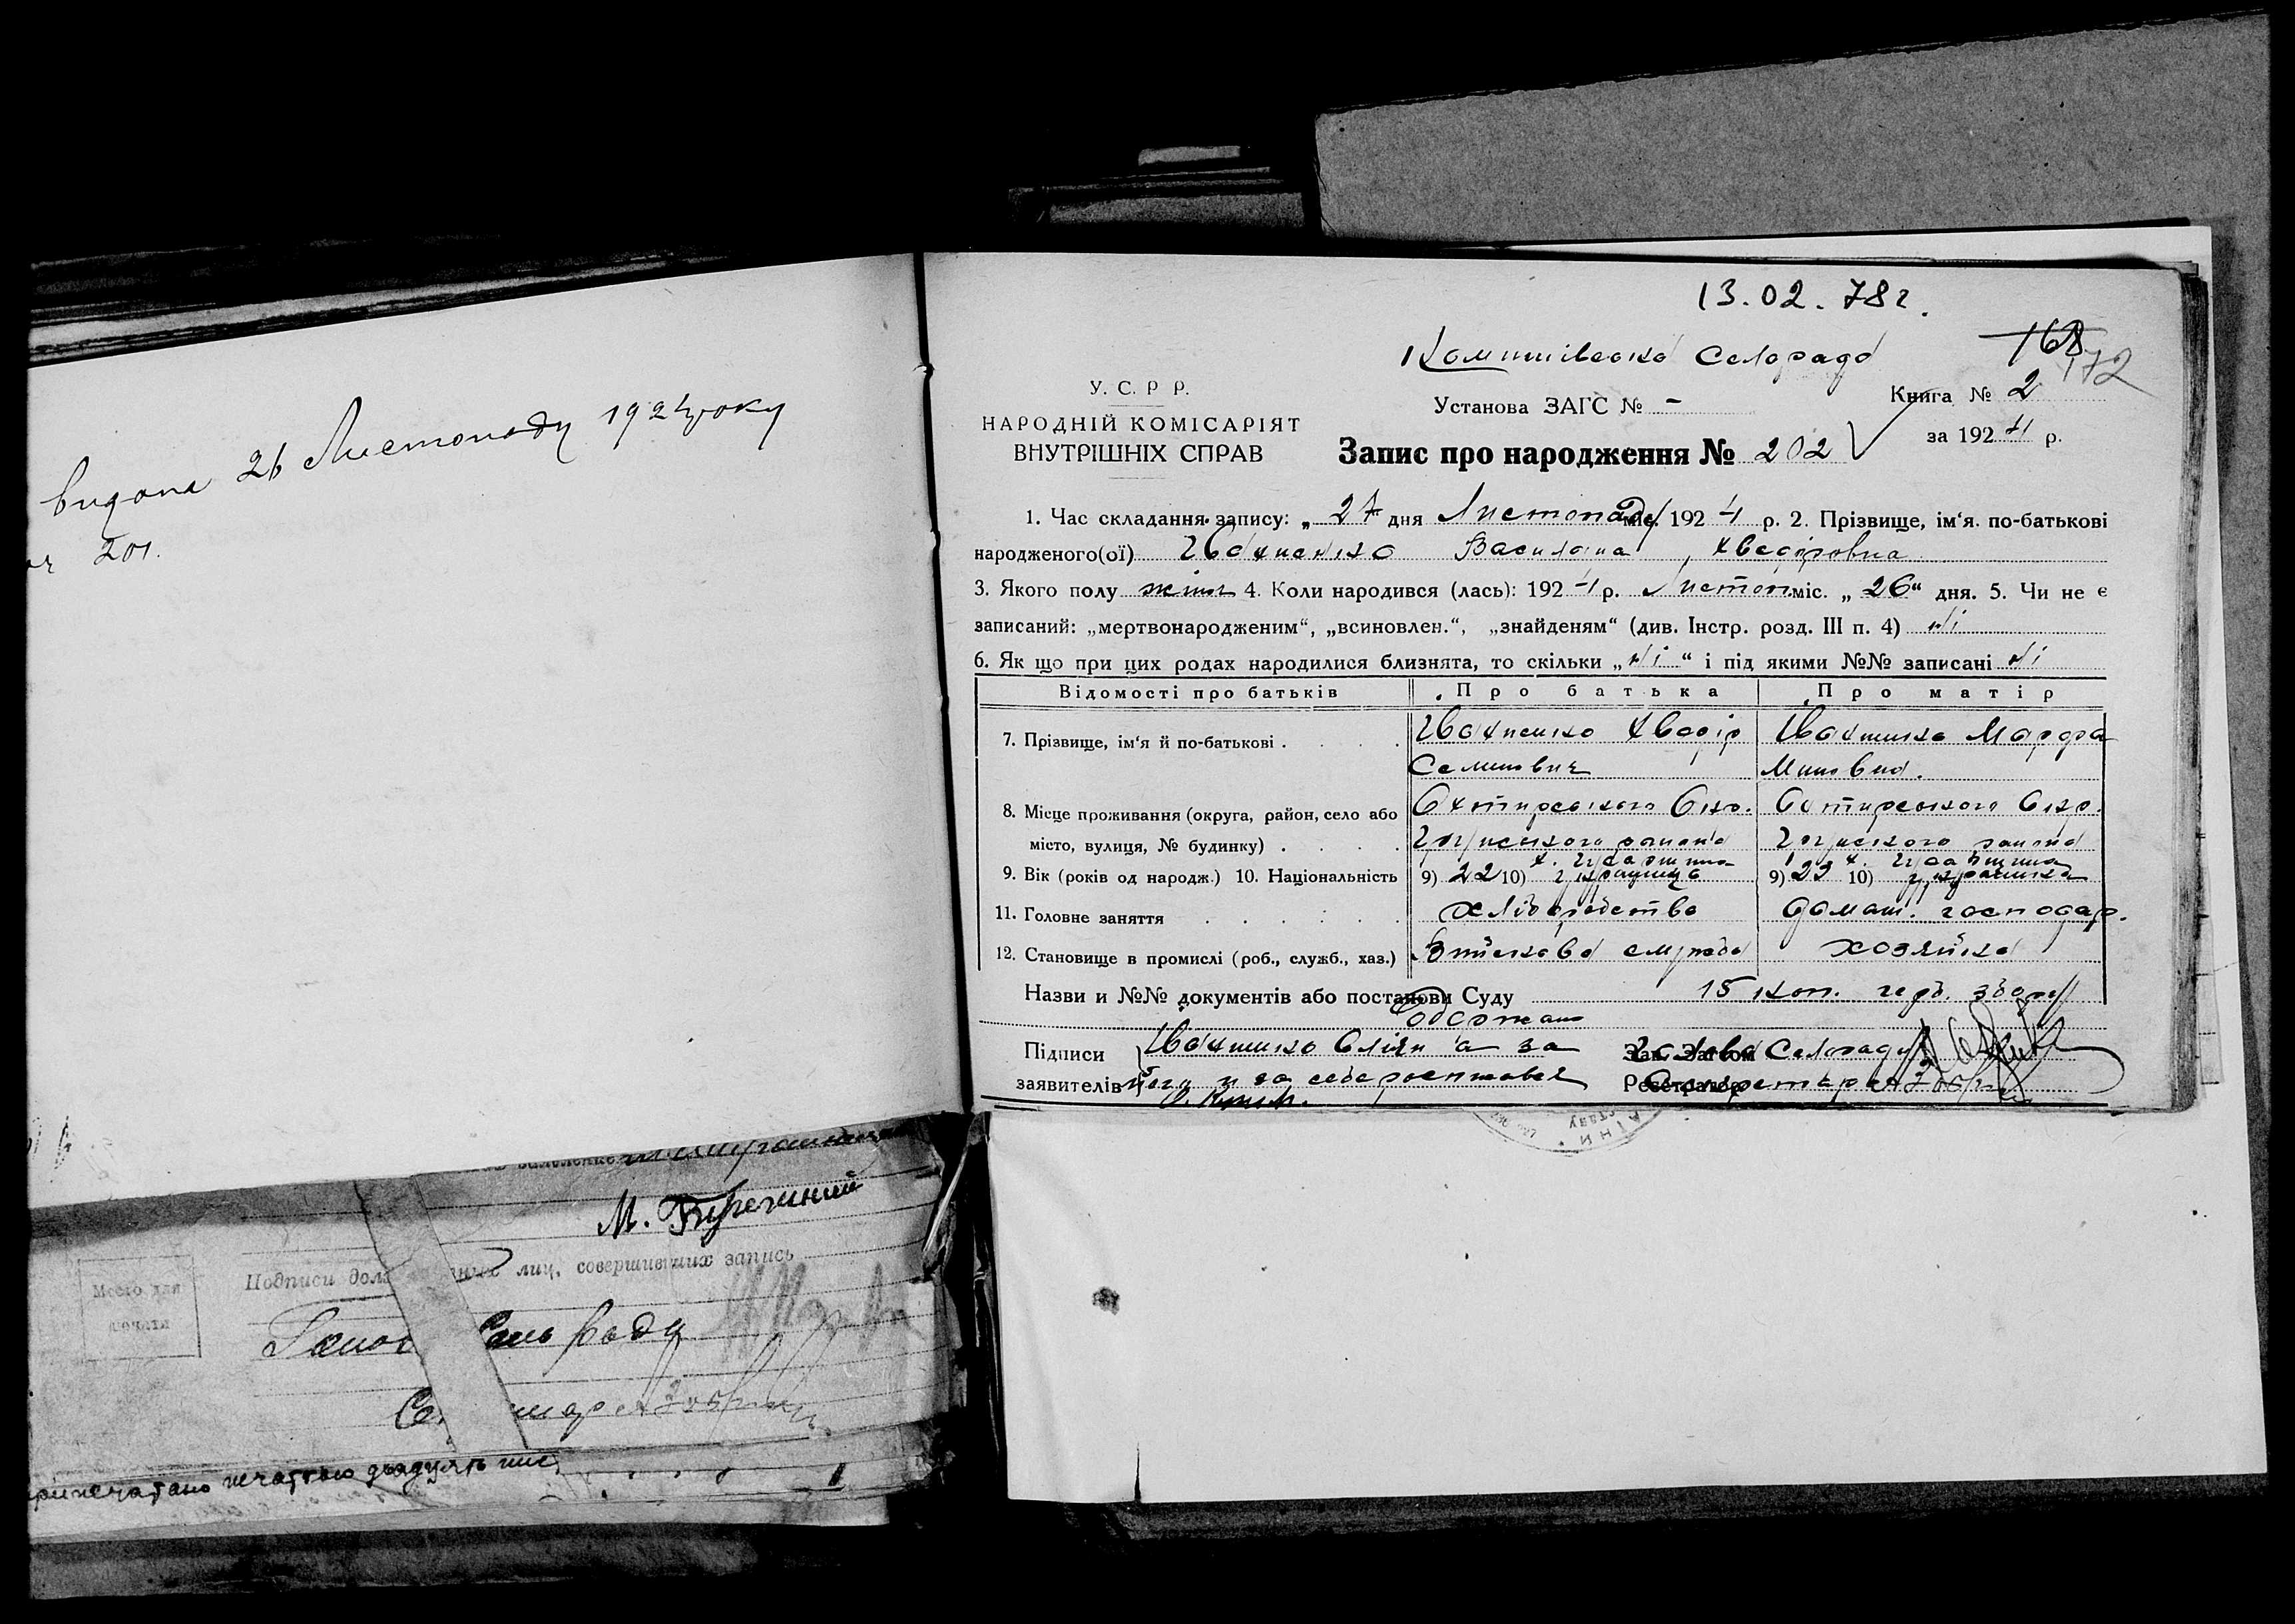 видана 26 Листопаду 1924 року
201.
13.02.78г.
Комишівська Селорада
168
172
У. С. Р Р.
НАРОДНІЙ КОМІСАРІЯТ
ВНУТРІШНІХ СПРАВ
Установа ЗАГС № -
Книга № 2
за 1924 р.
Запис про народження № 202
1. Час складання запису: „ 27 дня Листопаду міс. 1924 р. 2. Прізвище, ім‘я. по-батькові
народженого(ої) Івахненко Василина Хведіровна
3. Якого полу жіноч 4. Коли народився (лась): 1924 р. Листоп міс. „ 26“ дня. 5. Чи не є
записаний: „мертвонародженим“, „всиновлен.“, „знайденям“ (див. Інстр. розд. III п. 4) Ні
6. Як що при цих родах народилися близнята, то скільки „Ні“ і під якими №№ записані Ні
Відомості про батьків Про батька Про матір
7. Прізвище, ім‘я й по-батькові . . . . Івахненко Хведір Івахненко Марфа
Семенович
8. Місце проживання (округа, район, село або Охтирського Окр. Охтирського Окр.
місто, вулиця, № будинку) . . . . Грунського района Грунського района
9. Вік (років од народж.) 10. Національність 9) 22 10) українець 9) 23 10) українка
11. Головне заняття . . . . . . хліборобство домаш. господар.
12. Становище в промислі (роб., служб., хаз.) служба хозяйка
Назви и №№ документів або постанови Суду 15 коп. герб. збору
одержано
Підписи Івахненко а за Зав. Загсом Голова Селоради
заявителів и за себе росписався Реєстратор Секретар
М. Бережний
Место для
печати
Подписи лиц, совершивших запись
Голов Сель Ради
припечатано печаттю двадцять